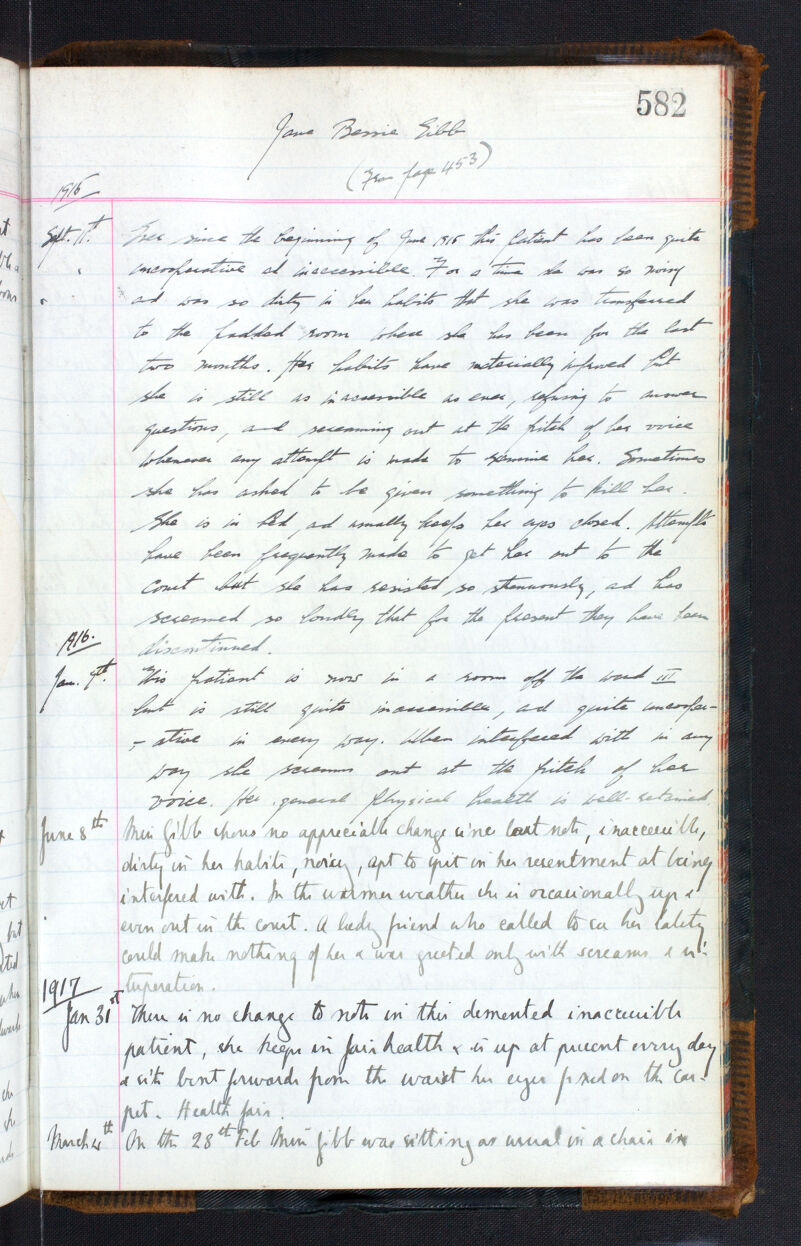 582
Jane Bessie Gibb
(From page 453)
1915
Sept. 11th. Ever since the beginning of June 1915 this patient has been quite
uncooperative ad inaccessible. For a time she was so noisy
ad was so dirty in her habits that she was transferred
to the padded room where she has been for the last
two months. Her habits have materially improved but
she is still as inaccessible as ever, refusing to answer
questions, and screaming out at the pitch of her voice
whenever any attempt is made to examine her. Sometimes
she has asked to be given something to kill her.
She is in bed ad usually keeps her eyes closed. Attempts
have been frequently made to get her out to the
Court but she has resisted so strenuously, ad has
screamed so loudly that for the present they have been
discontinued.
1916.
Jan. 9th. This patient is now in a room off the ward III
but is still quite inaccessible, ad quite uncooper-
-ative in every way. When interfered with in any
way she screams out at the pitch of her
voice. Her general physical health is well-retained
June 8th Miss Gibb shows no appreciable change since last note, inaccessible,
dirty in her habits, noisy, apt to spit in her resentment at being
interfered with. In the warmer weather she is occasionally up &
even out in the court. A lady friend who called to see her lately
could make nothing of her & was greeted only with screams & vi-
tuperation.
1917
Jan 31st There is no change to note in this demented inaccessible
patient, she keeps in fair health & is up at present every day
& sits bent forwards from the waist her eyes fixed on the car-
pet. Health fair.
March 4th On the 28th Feb Miss Gibb was sitting as usual in a chair in